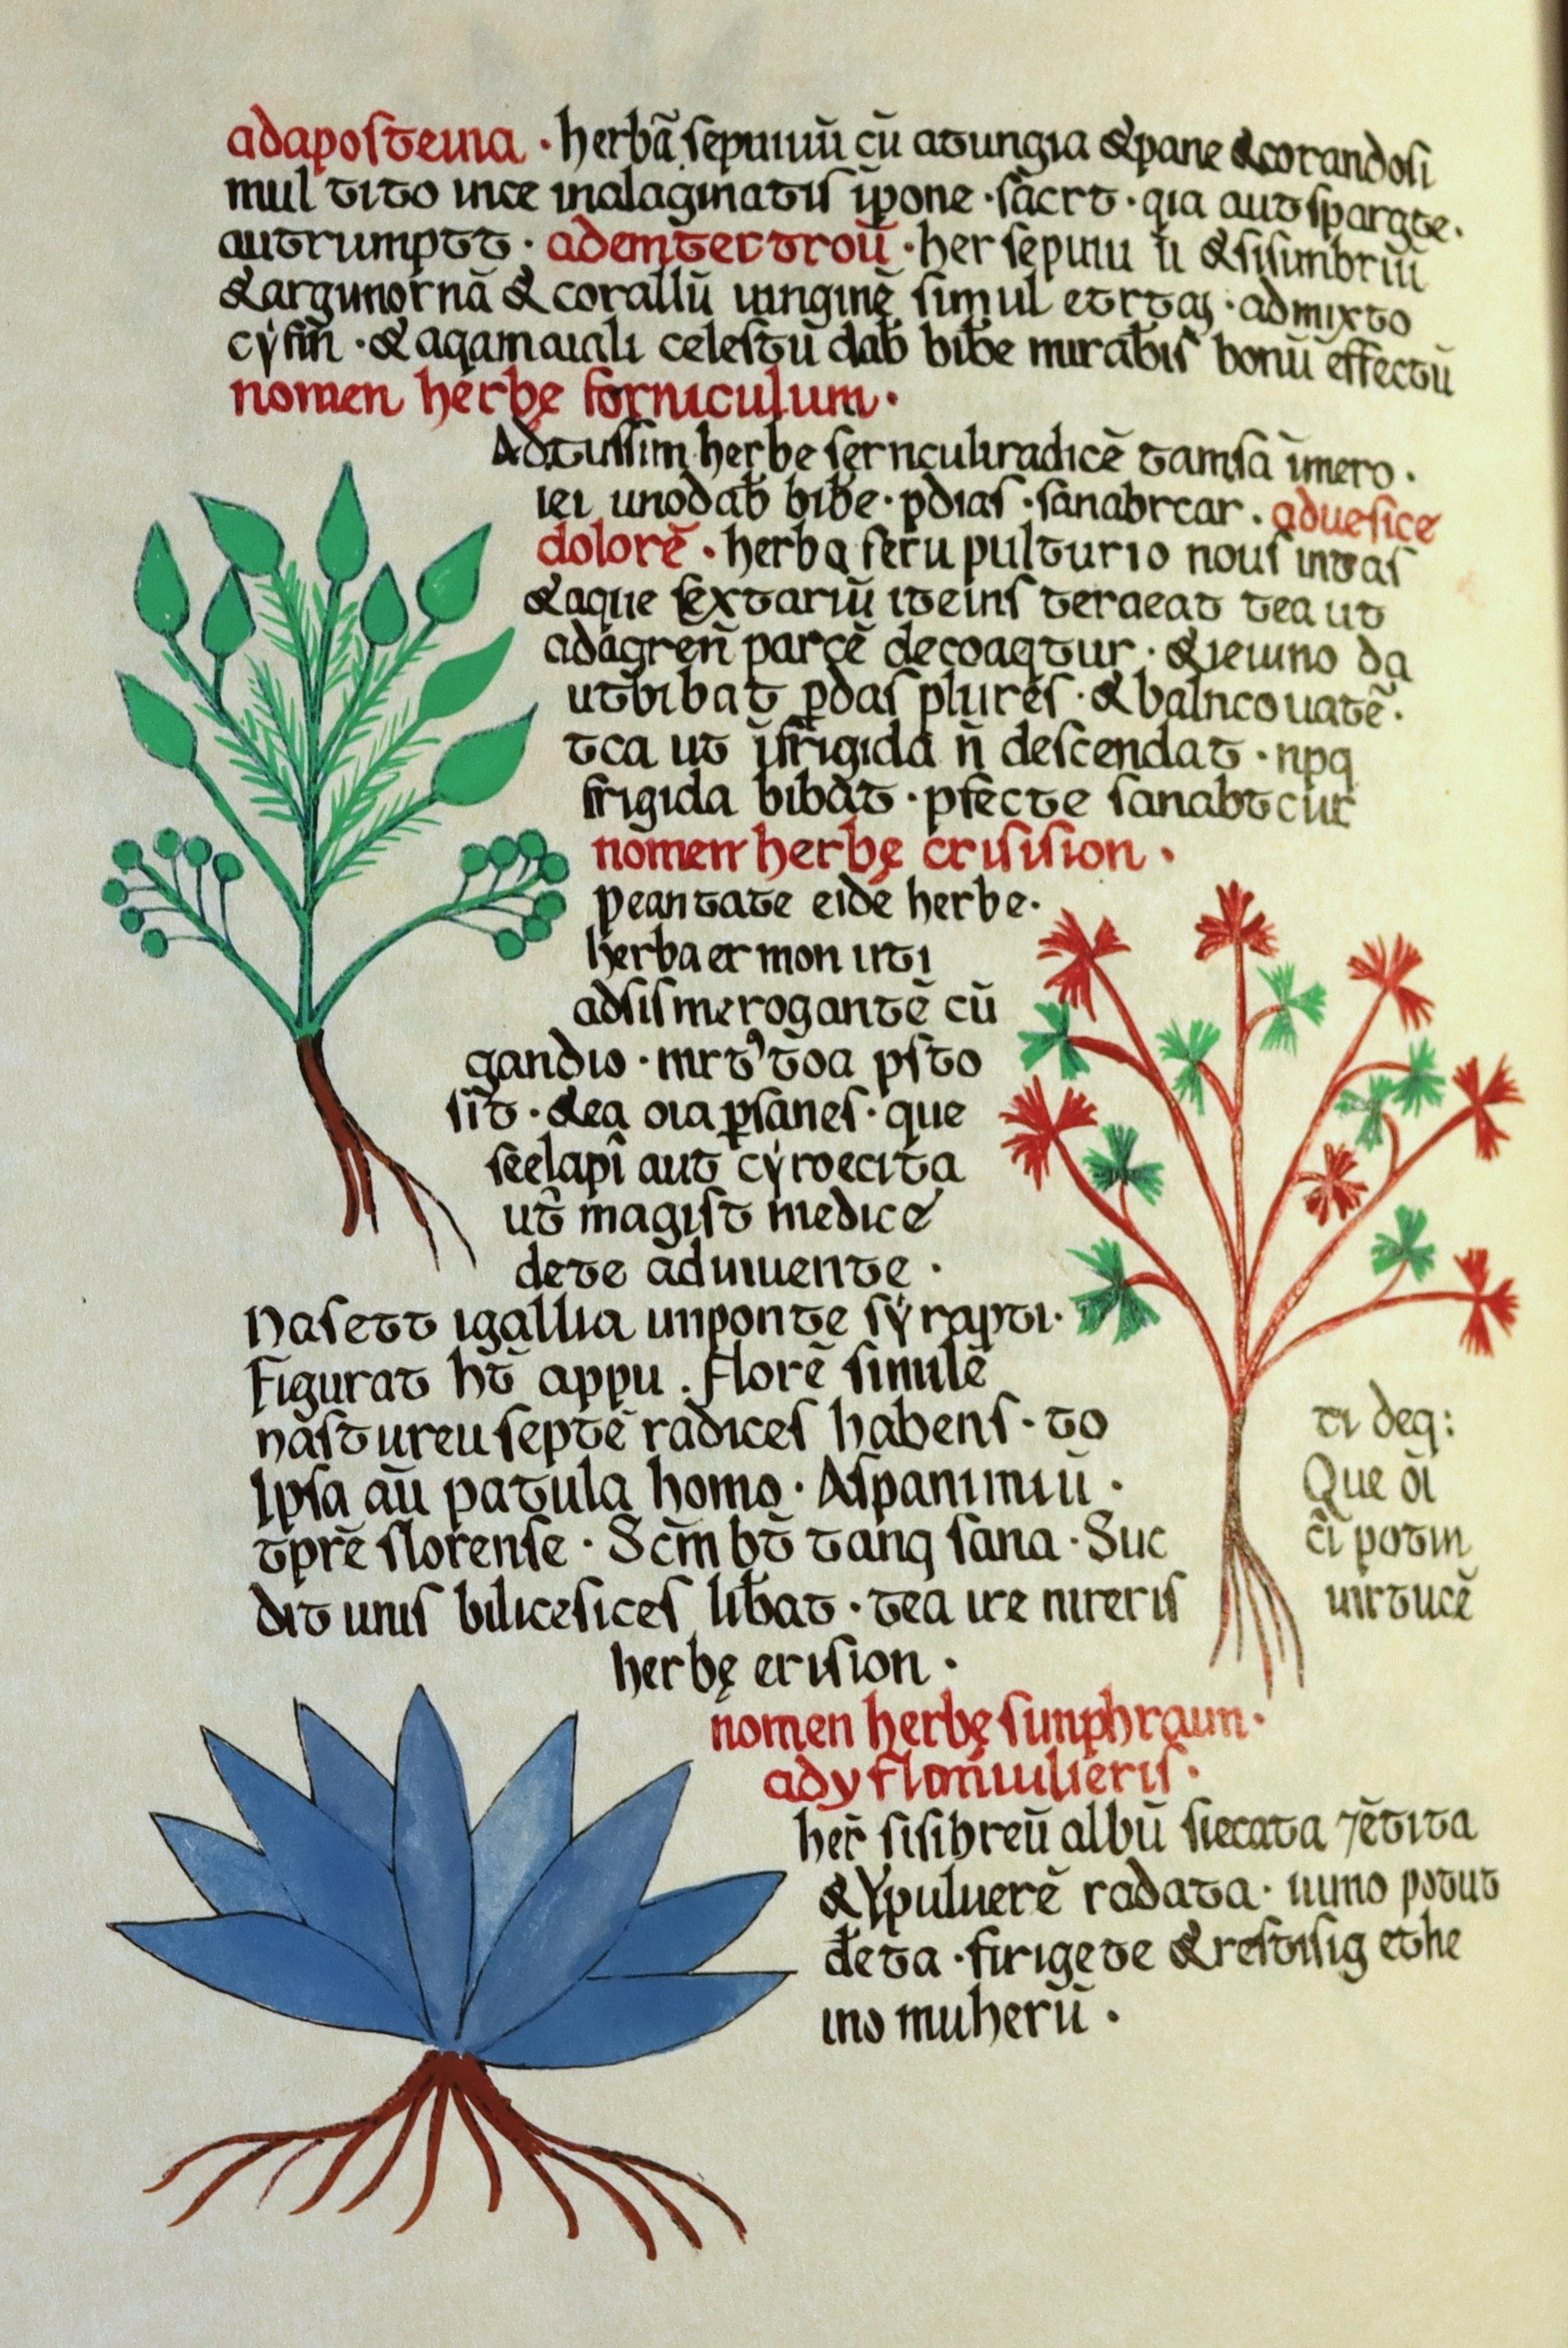 adapostema · herbā sepuiuū cū axungia &pane &corandosi
mul tito ince inalaginatis īpone · sācrt · qia aut spargte.
autrumptt · ademter trou᷑ · her sepuiu ii &sisimbriū
&argumornā &corallū uirginē simul etrtaɜ · admixto
cẏfin̄ · &aqamaiali celestū dab̄ bib̄e mirabis bonū effectū
nomen herbę forniculum ·
Adtussim herbe fernculiradicē tamsā īmero ·
iei unodab̄ bib̄e · pdias · sanabrcar . aduesice
dolorē · herba feru pulturio nous intas
&aque sextariū iteins teraeat tea ut
adagren̄ parcē decoaqtur · &ieiuno da
utbibat ꝑdias plures · &balncouatē ·
tca ut īfrigida n̄ descendat · npq
frigida bibat · pfecte sanabtcur
nomen herbę crisision ·
peantate eide herbe ·
herbaer mon irti
adsismerogantē cū
gandio · mrt᾽ tōa psto
sīt · &ea oia ꝑsanes · que
seelapī aut cẏroecita
ut̄ magist medice
dete āduiuente ·
Nasett igallia unponte sẏrapti ·
Figurat ht̄ appu . florē simile
nastureu septē radices habens · to
Ipsa aū patula homo · Aspanimiū ·
tprē florense · Scm̄ bt̄ tanq sana · Suc
dit unis bilicesices lib̄at · tea ire nireris
herbę erision ·
ti deq:
Que ōi
cī potin
uirtucē
nomen herbę simphraun ·
ady flom̄iulieris ·
her̄ sisibreū albū siecata ⁊ētita
&Ypuluerē radata · uino potut
deta · firigete &restisig ethe
ino muherū ·